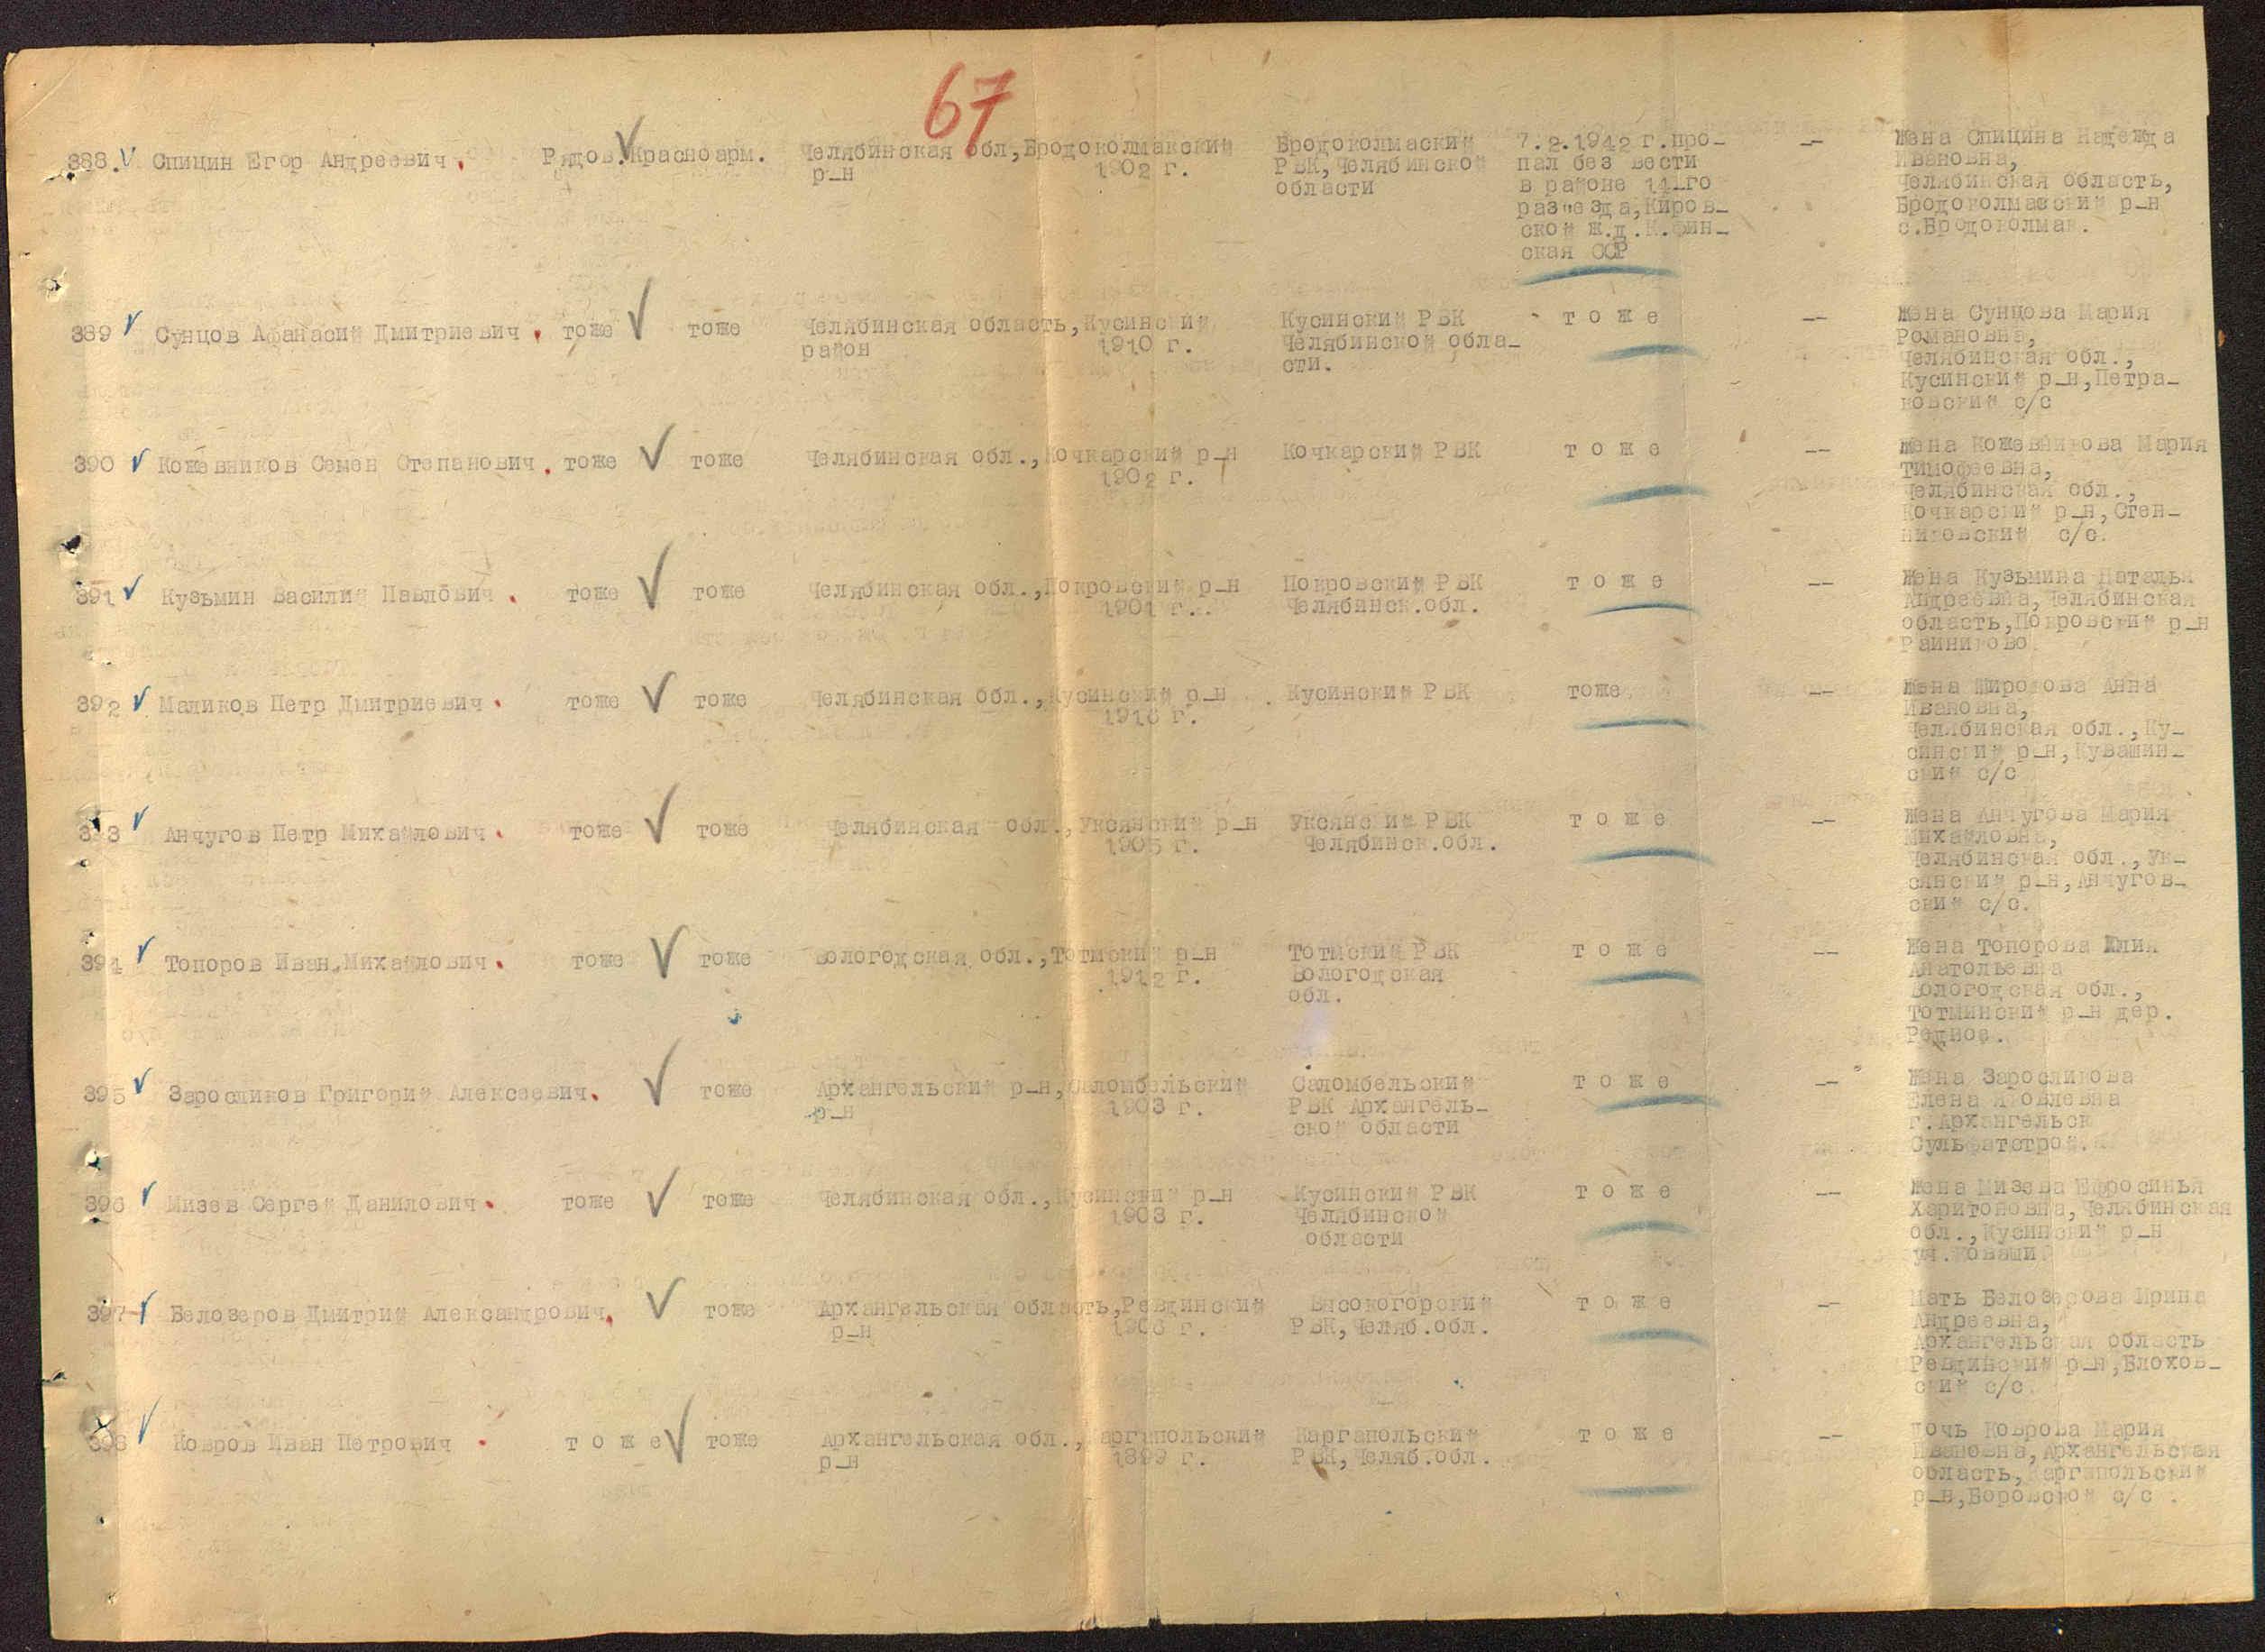 67
388. Спицин Егор Андреевич. Рядов. Красноарм. Челябинская обл,Бродоколмакский Бродоколмаский 7.2.1942 г.про- -- Жена Спицина Надежда
р-н 1902 г. РВК,Челябинской пал без вести Ивановна,
области в районе 14-го Челябинская область,
раз"езда,Киров- Бродоколмаский р-н
ской ж.д.К.Фин- с.Бродоколмак.
ская ССР
389 Сунцов Афанасий Дмитриевич. тоже тоже Челябинская область,Кусинский Кусинский РВК тоже -- Жена Сунцова Мария
район 1910 г. Челябинской обла- Романовна,
сти. Челябинская обл.,
Кусинский р-н,Петра-
ковский с/с
390 Кожевников Семен Степанович. тоже тоже Челябинская обл.,Кочкарский р-н Кочкарский РВК тоже -- Жена Кожевникова Мария
1902 г. Тимофеевна,
Челябинская обл.,
Кочкарский р-н,Степ-
никовский с/с.
391 Кузьмин Василий Павлович. тоже тоже Челябинская обл.,Покровский р-н Покровский РВК тоже -- Жена Кузьмина Наталья
1901 г.. Челябинск.обл. Андреевна,Челябинская
область,Покровский р-н
Райниково
392 Маликов Петр Дмитриевич. тоже тоже Челябинская обл.,Кусинский р-н Кусинский РВК тоже -- Жена Широкова Анна
г. Ивановна,
Челябинская обл.,Ку-
синский р-н,Кувашин-
ский с/с
393 Анчугов Петр Михайлович. тоже тоже Челябинская обл.,Уксянский р-н Уксянский РВК тоже -- Жена Анчугова Мария
1905 г. Челябинск.обл. Михайловна,
Челябинская обл.,Ук-
сянский р-н,Анчугов-
ский с/с.
394 Топоров Иван Михайлович. тоже тоже Вологодская обл.,Тотмский р-н Тотмский РВК тоже -- Жена Топорова Юлия
1912 г. Вологодская Анатольевна
обл. Вологодская обл.,
Тотминский р-н дер.
395 Заросликов Григорий Алексеевич. тоже Архангельский р-н,Саломбельский Саломбельский тоже -- Жена Заросликова
р-н 1903 г. РВК Архангель- Елена Яковлевна
ской области г.Архангельск
Сульфатстрой.
396 Мизев Сергей Данилович. тоже тоже Челябинская обл.,Кусинский р-н Кусинский РВК тоже -- Жена Мизева Ефросинья
1903 г. Челябинской Харитоновна,Челябинская
области обл.,Кусинский р-н
397 Белозеров Дмитрий Александрович. тоже Архангельская область,Ревдинский Высокогорский тоже -- Мать Белозерова Ирина
р-н 1906 г. РВК,Челяб.обл. Андреевна,
Архангельская область
Ревдинский р-н,Блохов-
ский с/с
398 Ковров Иван Петрович тоже тоже Архангельская обл.,Каргапольский Каргапольский тоже -- Дочь Коврова Мария
р-н 1899 г. РВК,Челяб.обл. Ивановна,Архангельская
область,Каргапольский
р-н,Боровской с/с.